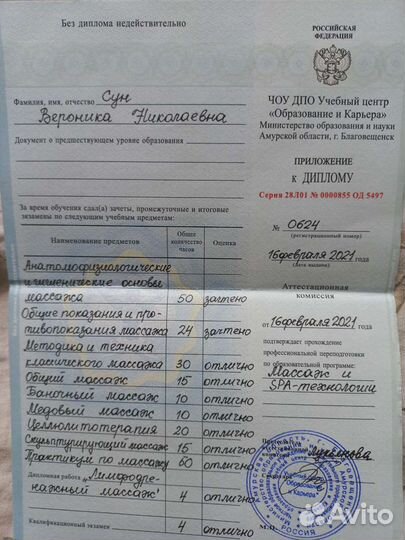 Без диплома недействительно
Фамилия, имя, отчество Сун
Вероника Николаевна
Документ о предшествующем уровне образования
За время обучения сдал(а) зачеты, промежуточные и итоговые
экзамены по следующим учебным предметам:
Наименование предметов Общее количество часов Оценка
Анатомофизиологические
и гигиенические основы
массажа 50 зачтено
Общие показания и про-
тивопоказания массажа 24 зачтено
Методика и техника
классического массажа 30 отлично
Общий массаж 15 отлично
Баночный массаж 10 отлично
Медовый массаж 10 отлично
Целлюлитотерапия 20 отлично
Скульптурирующий массаж 15 отлично
Практикум по массажу 60 отлично
Дипломная работа „Лимфодре-
нажный массаж" 4 отлично
Квалификационный экзамен 4 отлично
РОССИЙСКАЯ
ФЕДЕРАЦИЯ
ЧОУ ДПО Учебный центр
«Образование и Карьера»
Министерство образования и науки
Амурской области, г. Благовещенск
ПРИЛОЖЕНИЕ
к ДИПЛОМУ
Серия 28Л01 № 0000855 ОД 5497
№ 0624
(регистрационный номер)
16 февраля 2021 года
(дата выдачи)
Аттестационная
комиссия
от 16 февраля 2021 года
подтверждает прохождение
профессиональной переподготовки
по образовательной программе:
Массаж и
SPA-технологии
Образование
и Карьера
М.П.
РОССИЯ
Avito